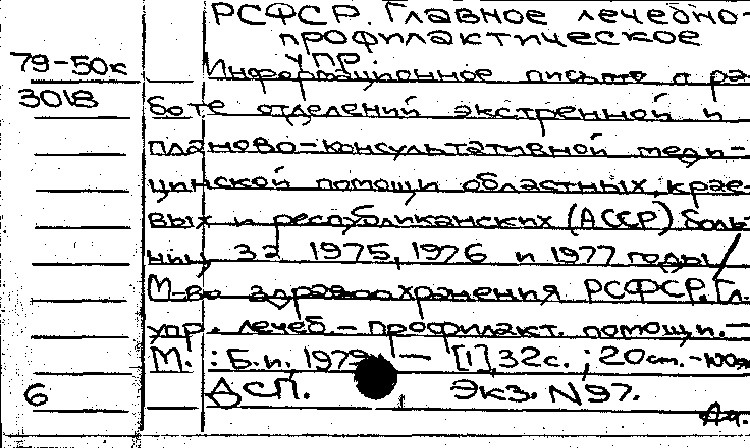 РСФСР. Главное лечебно-
профилактическое
упр.
79-50к
Информационное письмо о ра-
3018
боте отделений экстренной и
планово-консультативной меди-
цинской помощи областных, крае-
вых и республиканских (АССР) боль-
ниц за 1975, 1976 и 1977 годы /
М-во здравоохранения РСФСР. Гл.
упр. лечеб.-профилакт. помощи. -
М. : Б.и., 1979. - [1], 32с. ; 20см. -
6
ДСП. Экз. N 97.